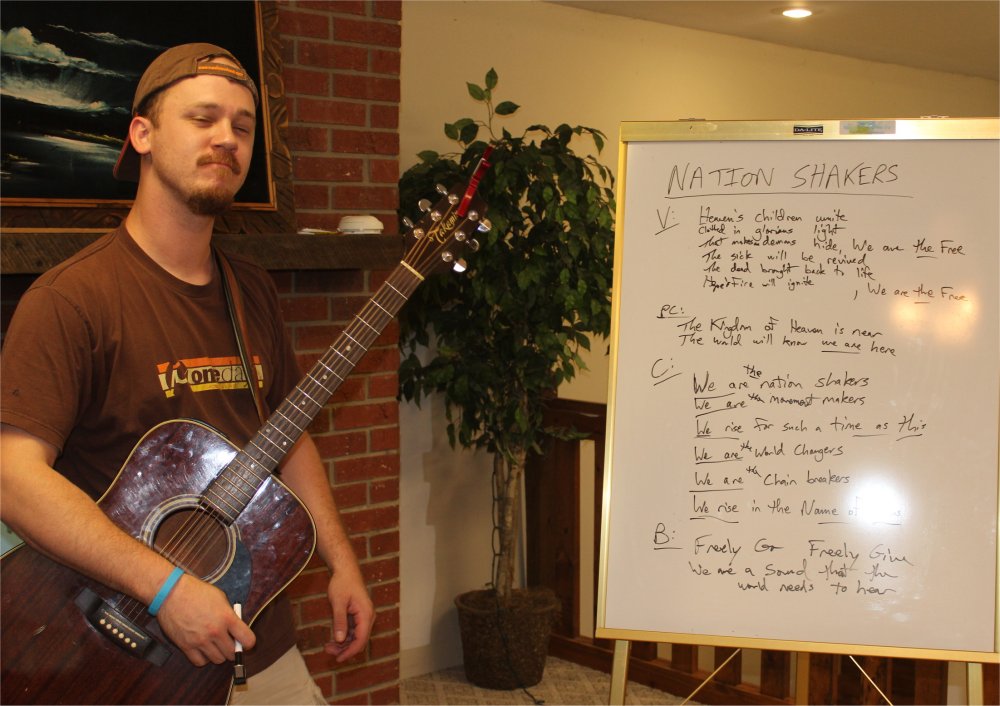 DA-LITE
NATION SHAKERS
V: Heaven's children unite
Clothed in glorious light
That makes demons hide, We are the Free
The sick will be revived
The dead brought back to life
Hope's Fire will ignite , We are the Free
PC:
The Kingdom of Heaven is near
The world will know we are here
C:
We are the nation shakers
We are the movement makers
We rise for such a time as this
We are the World Changers
We are the Chain breakers
We rise in the Name of
B: Freely Go Freely Give
We are a Sound that the
world needs to hear
Takamine